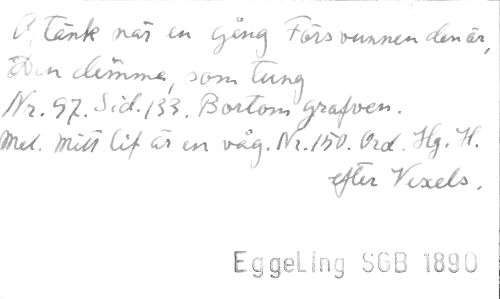 A, tänk när en gång Försvunnen den är,
Den dimma, som tung
Nr. 97. Sid. 133. Bortom grafven.
Mel. Mitt lif är en våg. Nr. 150. Ord. Hg. H.
efter Vexels.
EggeLing SGB 1890